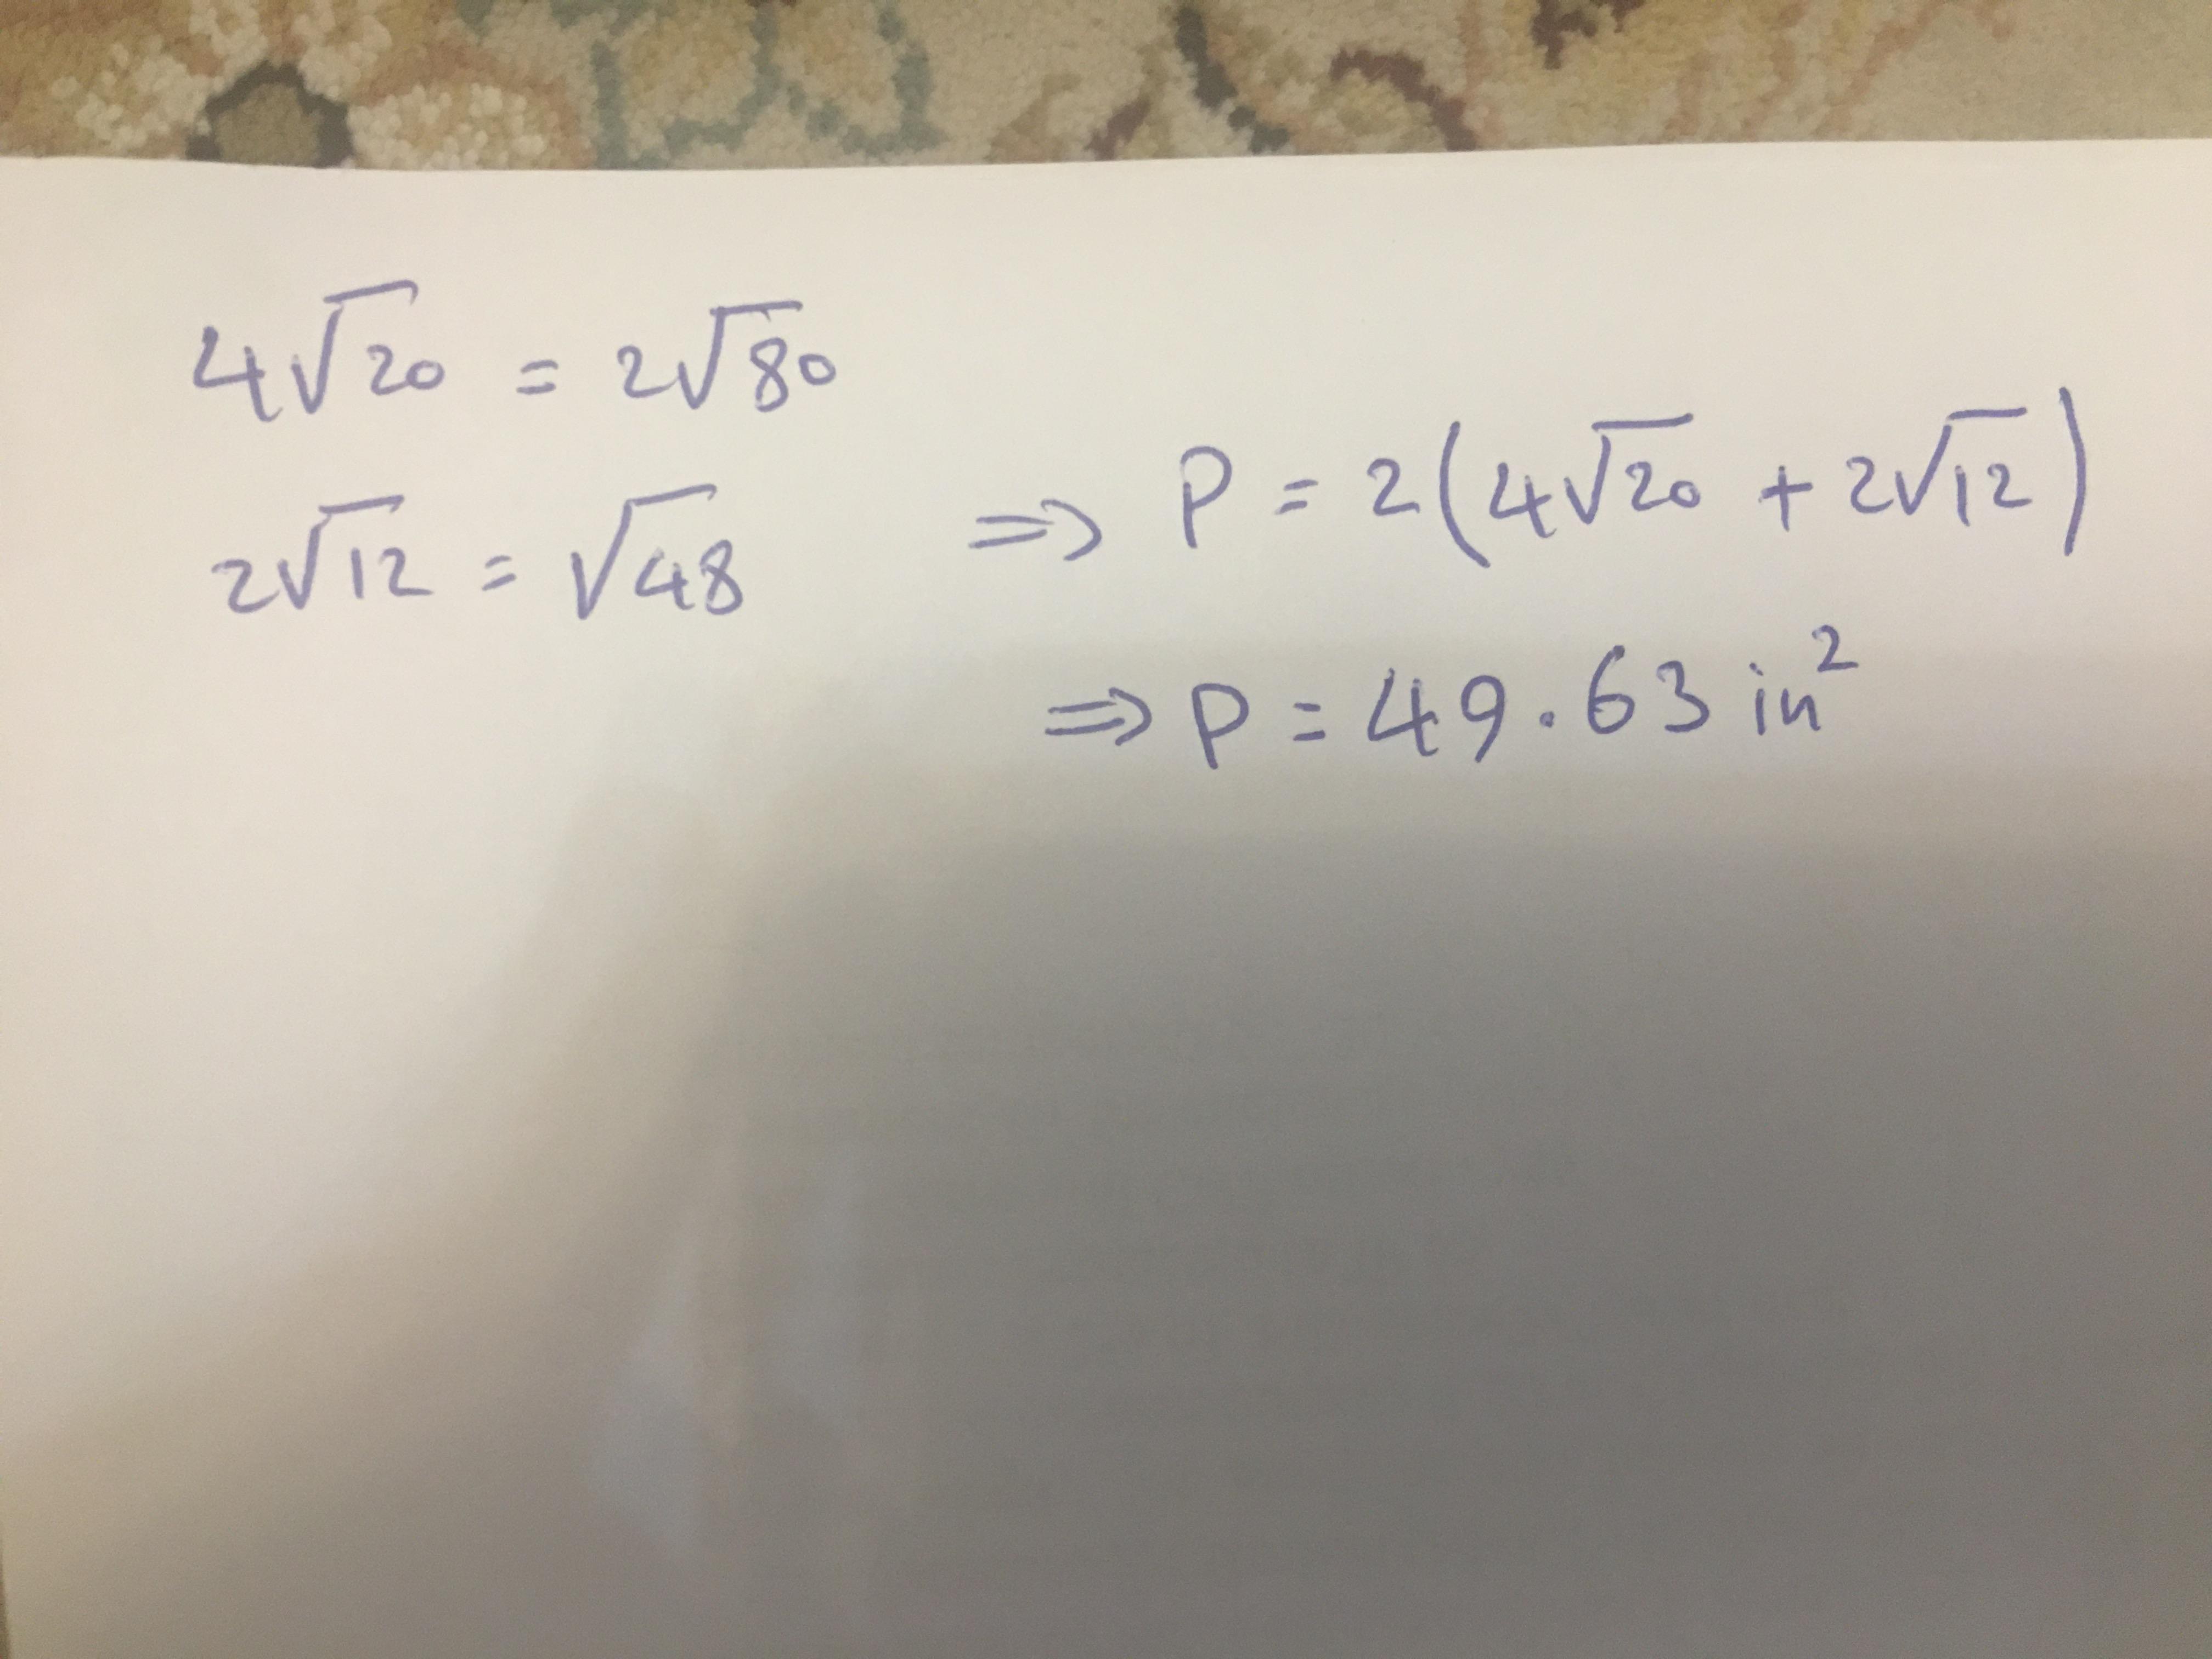 4√20 = 2√80
2√12 = √48
⇒ P = 2(4√20 + 2√12)
⇒ P = 49.63 in²